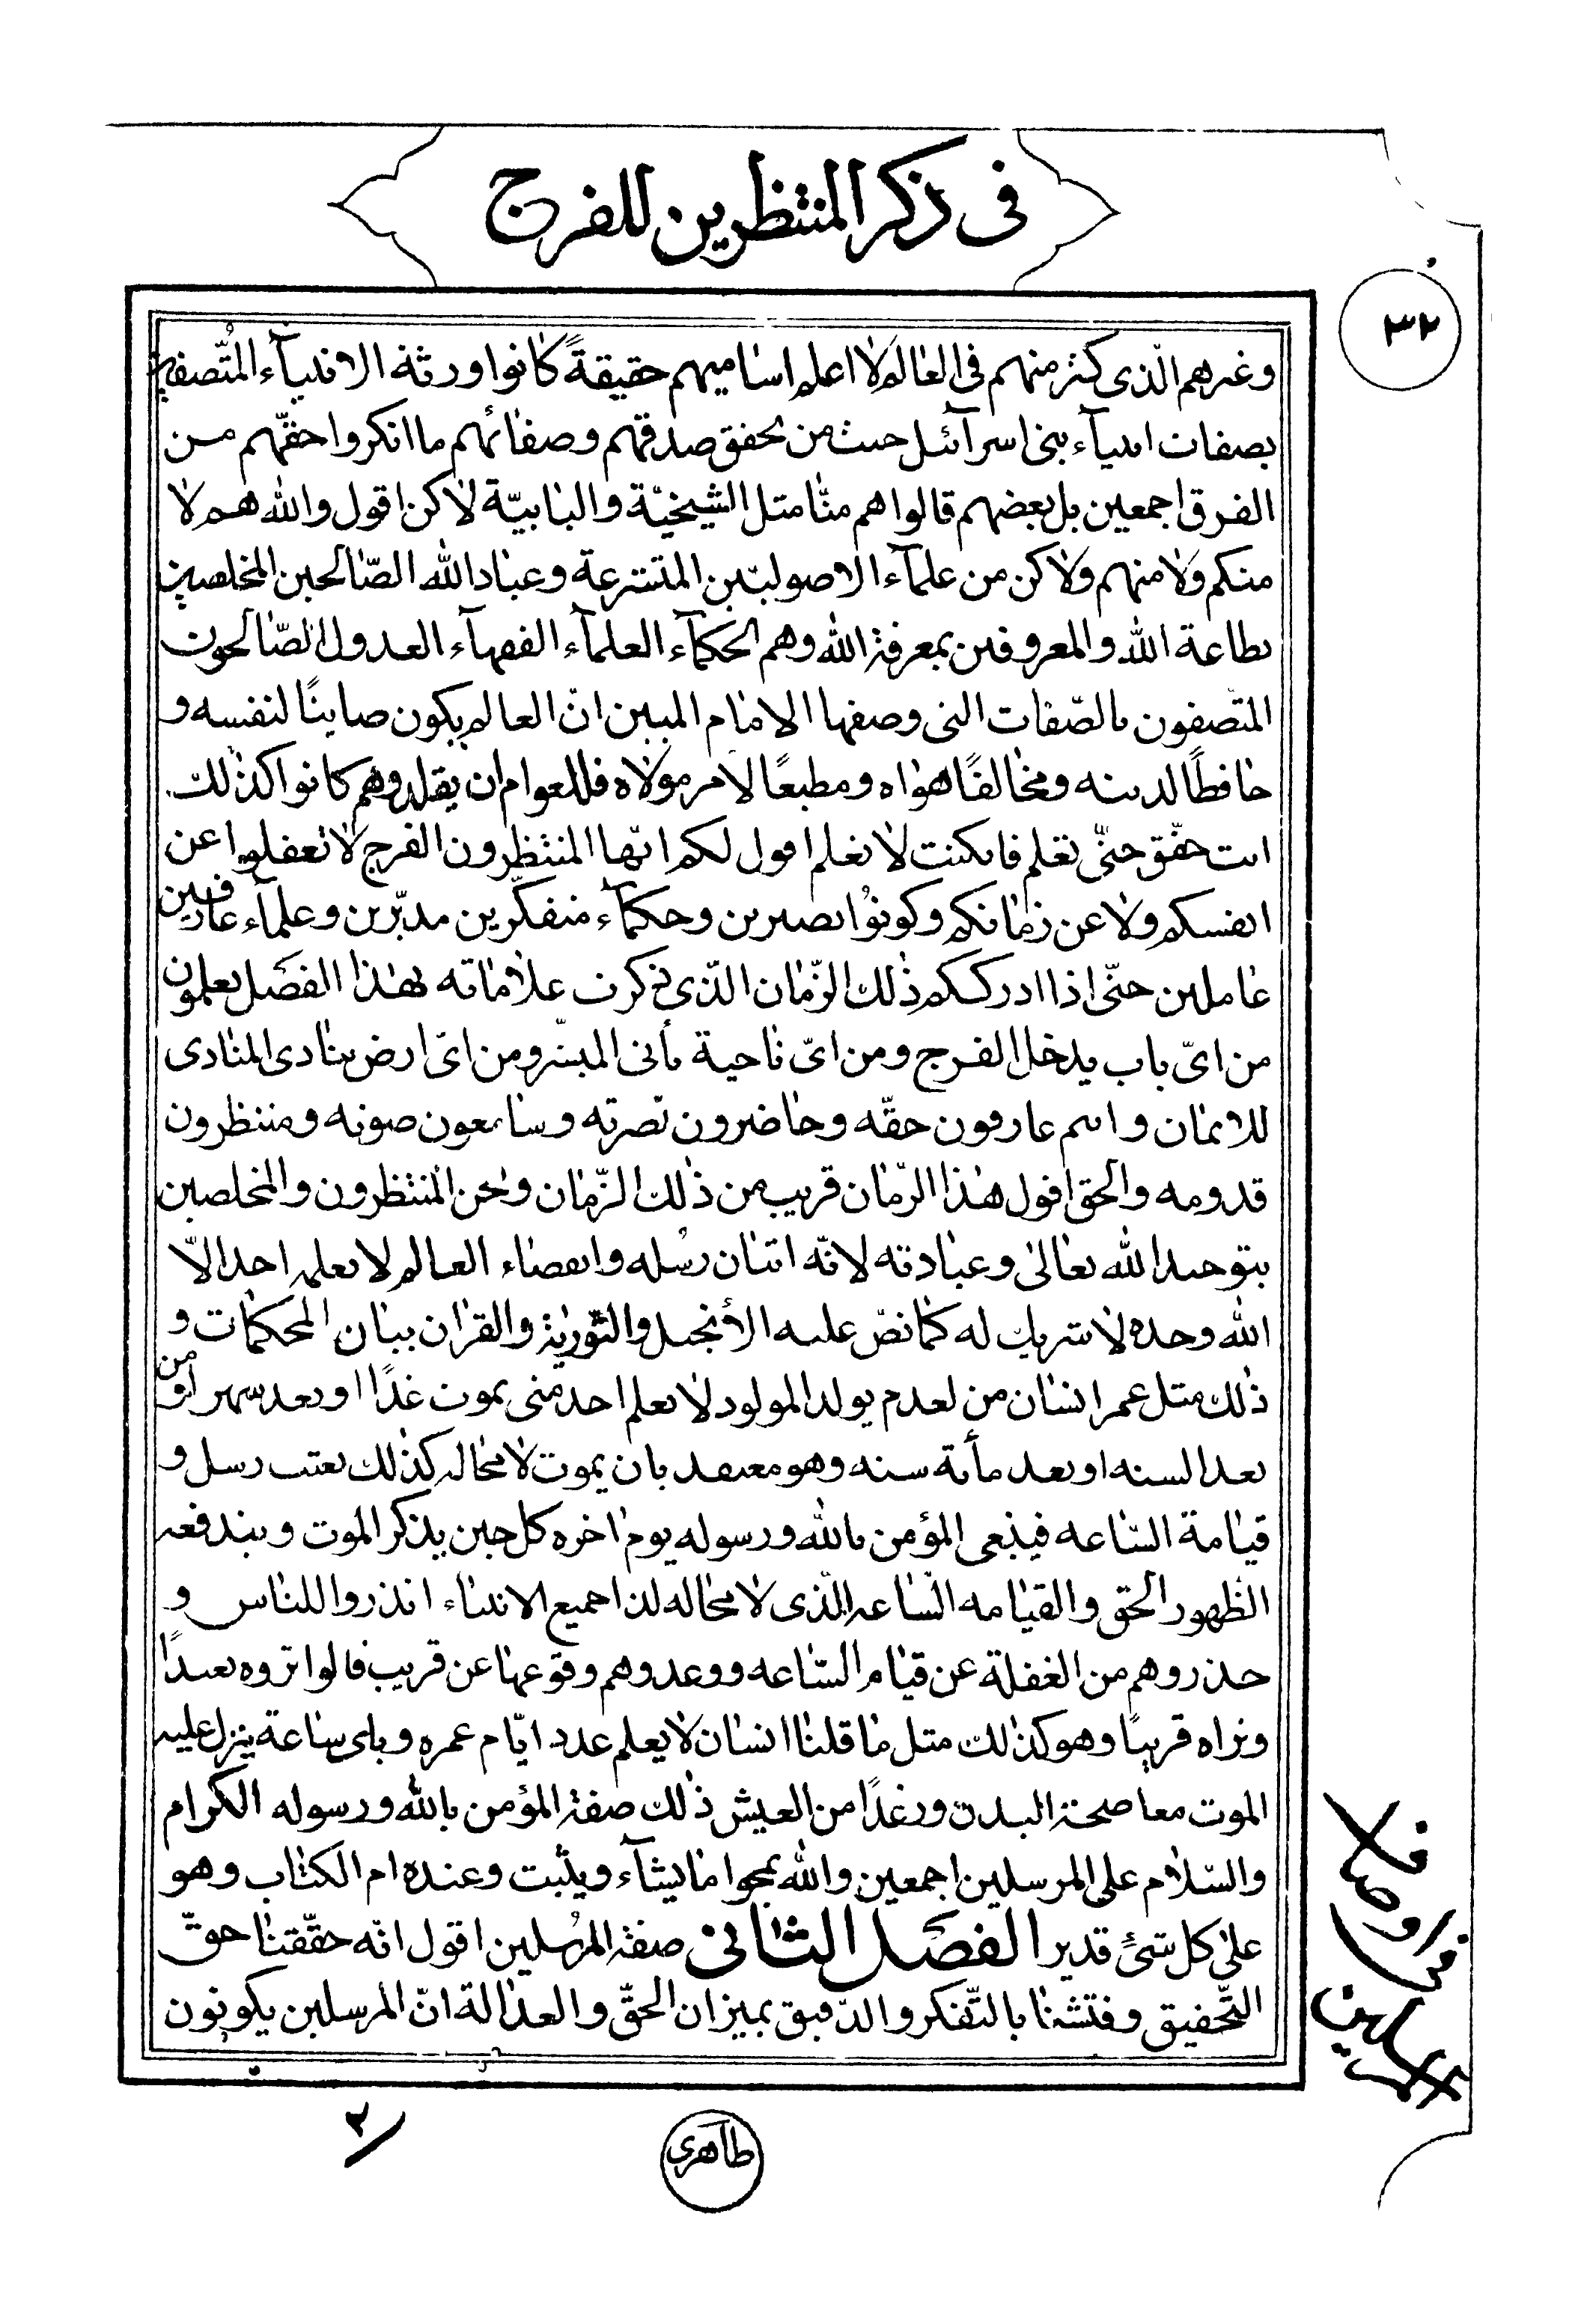 فى ذكر المنتظرين للفرج
٣٢
وغيرهم الّذى كثر منهم فى العالم لا اعلم اساميهم حقيقةً كانوا ورثة الانبيآء المُتّصفين
بصفات انبيآء بنى اسرآئيل حيث من تحقق صدقهم وصفائهم ما انكروا حقّهم من
الفرق اجمعين بل بعضهم قالوا هم منّا مثل الشيخيّة والبابيّة لاكن اقول والله هم لا
منكم ولا منهم ولاكن من علمآء الاصوليّين المتشرعة وعباد الله الصّالحين المخلصين
بطاعة الله والمعروفين بمعرفة الله وهم الحكمآء العلمآء الفقهآء العدول الصّالحون
المتّصفون بالصّفات التى وصفها الامام المبين انّ العالم يكون صاينًا لنفسه و
حافظًا لدينه ومخالفًا هواه ومطيعًا لامر مولاه فللعوام ان يقلدوهم كانوا كذلك
انت حقّق حتّى تعلم فانكنت لا تعلم اقول لكم ايّها المنتظرون الفرج لا تغفلوا عن
انفسكم ولا عن زمانكم وكونوُا بصيرين وحكمآء متفكّرين مدبّرين وعلمآء عارفين
عاملين حتّى اذا ادرككم ذلك الزّمان الّذى ذكرت علاماته بهذا الفصل تعلمون
من اىّ باب يدخل الفرج ومن اىّ ناحية يأتى المبشّر ومن اىّ ارض ينادى المنادى
للايمان وانتم عارفون حقّه وحاضرون نصرته وسامعون صوته ومنتظرون
قدومه والحق اقول هذا الزّمان قريب من ذلك الزّمان ونحن المنتظرون والمخلصين
بتوحيد الله تعالى وعبادته لانّه اتيان رسُله وانقضاء العالم لا يعلم احد الّا
الله وحده لا شريك له كما نصّ عليه الأنجيل والتّوریة والقران ببيان المحكمات و
ذلك مثل عمر انسان من لعدم يولد المولود لا يعلم احد متى يموت غدًا او بعد شهر او من
بعد السنه او بعد مأية سنه وهو معتقد بان يموت لا محاله كذلك بعث رسل و
قيامة السّاعه فينبغى المؤمن بالله ورسوله يوم اخره كل حين يذكر الموت و
الظهور الحق والقيامه السّاعه الّذى لا محاله لذا جميع الانبياء انذروا للناس و
حذروهم من الغفلة عن قيام السّاعه ووعدوهم وقوعها عن قريب قالوا تروه بعيدًا
ونراه قريبًا وهو كذلك مثل ما قلنا انسان لا يعلم عدد ايّام عمره وباى ساعة ينزل عليه
الموت معا صحة البدن ورغدًا من العيش ذلك صفة المؤمن بالله ورسوله الكرام
والسّلام على المرسلين اجمعين والله يمحوا ما يشآء ويثبت وعنده ام الكتاب وهو
على كل شئ قدير الفصل الثانى صفة المرُسلين اقول انّه حقّقنا حقّ
التّحقيق وفتشنا بالتّفكر والدّقيق بميزان الحقّ والعدالة انّ المرسلين يكونون
فى اوصاف
المرسلين
طاهرى
٢